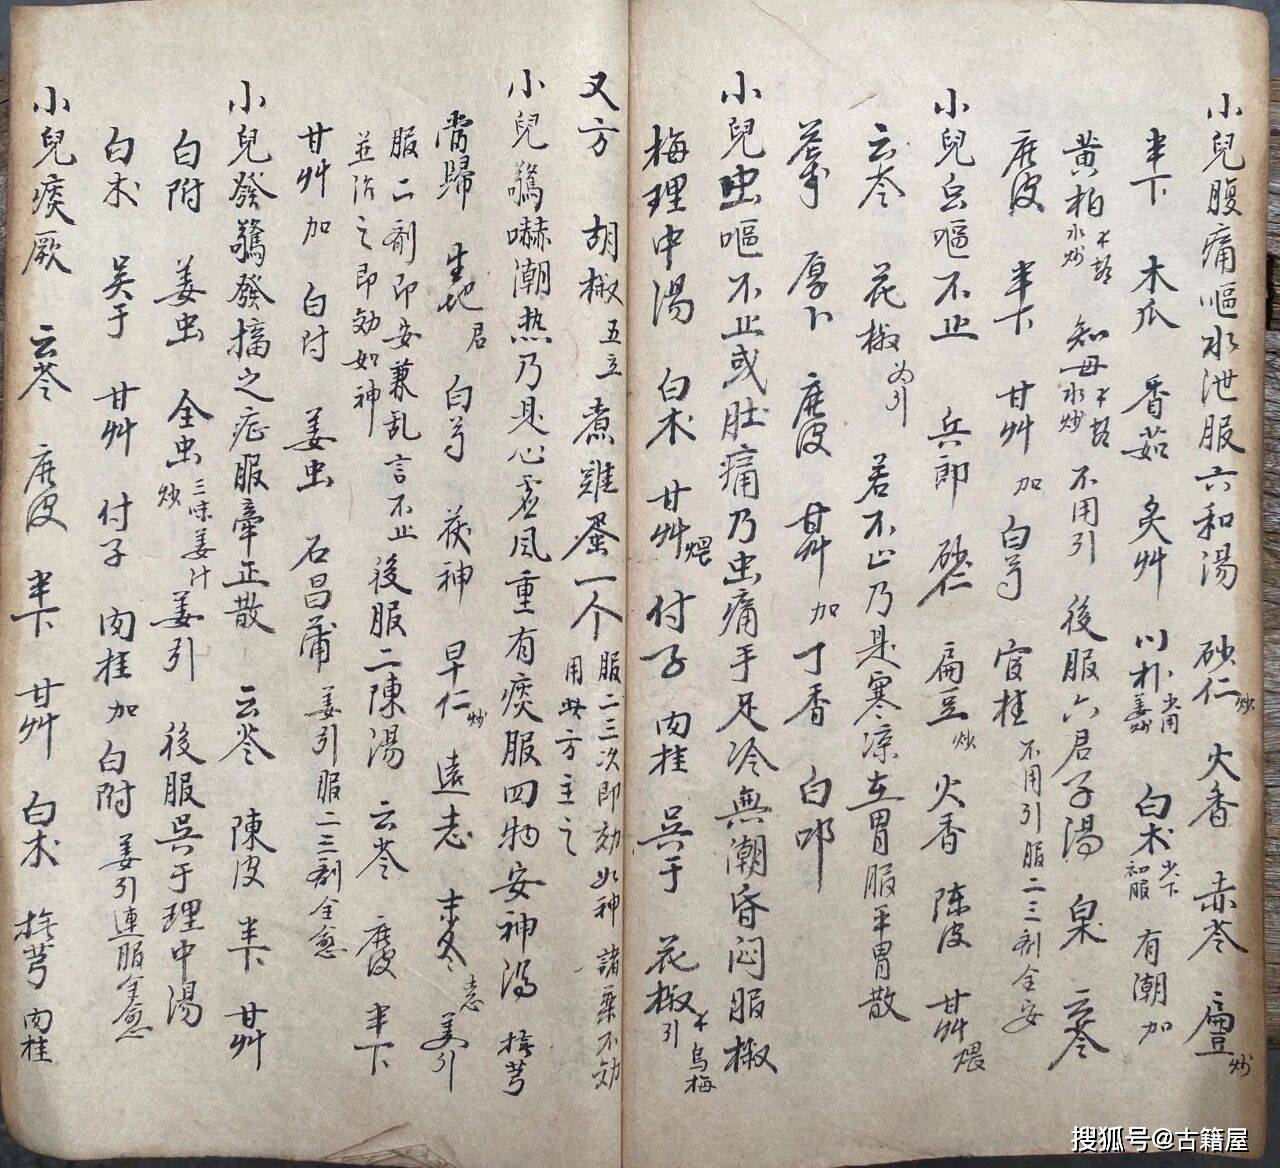 小兒腹痛嘔水泄服六和湯 砂仁炒 火香 赤苓 扁豆炒
半下 木瓜 香茹 炙艸 川朴 姜炒 白术 初服 有潮加
黄柏 水炒 知母 水炒 不用引 後服六君子湯 云苓
陳皮 半下 甘艸 加 白芍 官桂 不用引服二三剂全安
小兒嘔不止 兵郎 砂仁 扁豆炒 火香 陈皮 甘艸煨
云苓 花椒 为引 若不止乃是寒凉在胃服平胃散
厚卜 陳皮 甘艸 加 丁香 白叩
小兒虫嘔不止或肚痛乃虫痛手足冷無潮昏闷服椒
梅理中湯 白术 甘艸煨 付子 肉桂 吴于 花椒引 烏梅
又方 胡椒 五立 煮雞蛋一个 服二三次即効如神諸藥不効
用此方主之
小兒驚嚇潮热乃是心虚風重有痰服四物安神湯 撫芎
當歸 生地君 白芍 茯神 早仁炒 遠志 麦冬 去心 姜引
服二剂即安兼乱言不止 後服二陳湯 云苓 陳皮 半下
並治之即効如神
甘艸 加 白付 姜虫 石昌蒲 姜引服二三剂全愈
小兒發驚發搐之症服牽正散 云苓 陳皮 半下 甘艸
白附 姜虫 全虫炒 三味姜汁 姜引 後服吴于理中湯
白术 吴于 甘艸 付子 肉桂 加 白附 姜引連服全愈
小兒痰厥 云苓 陳皮 半下 甘艸 白术 撫芎 肉桂
搜狐号@古籍屋